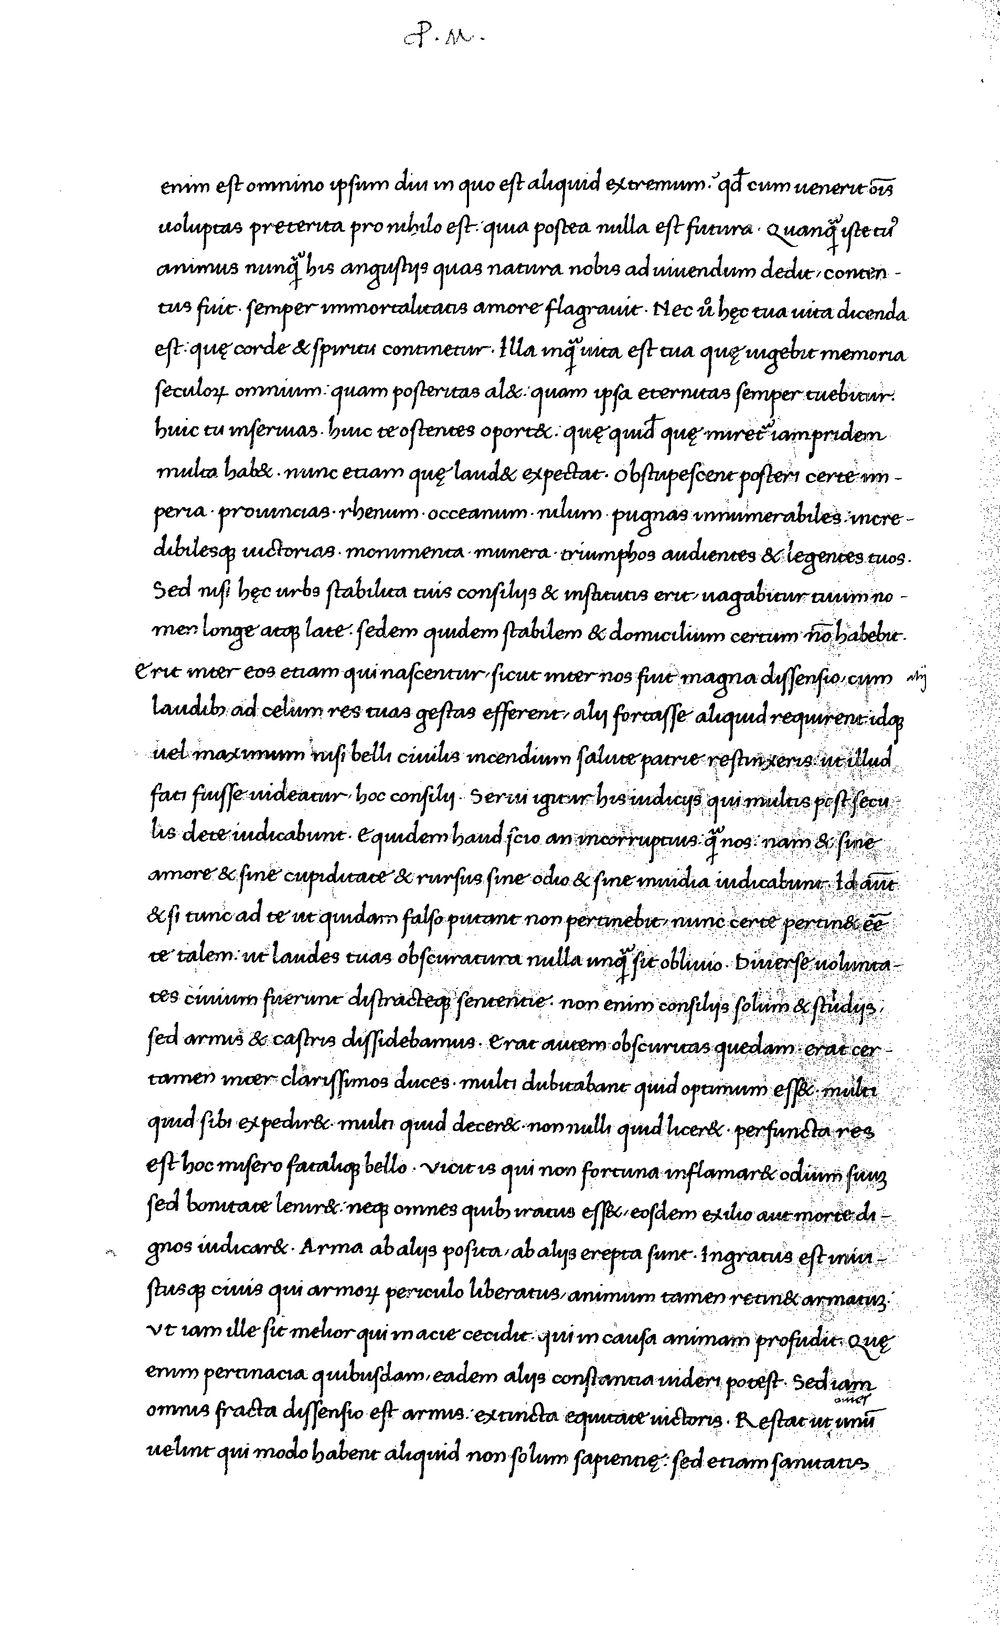 P. M.
enim est omnino ipsum diu in quo est aliquid extremum. qd̄ cum uenerit oīs
uoluptas preterita pro nihilo est: quia postea nulla est futura. Quanq̄ iste tu᷒
animus nunq̄ his angustijs quas natura nobis ad uiuendum dedit, conten-
tus fuit. semper immortalitatis amore flagrauit. Nec u᷒ hęc tua uita dicenda
est: quę corde & spiritu continetur. Illa inq̄ uita est tua quę uigebit memoria
seculoꝝ omnium: quam posteritas al&: quam ipsa eternitas semper tuebitur.
huic tu inseruias. huic te ostentes oport&: quę quid̄ quę miret᷒ iampridem
multa hab&. nunc etiam quę laud& expectat. Obstupescent posteri certe im-
peria. prouincias. rhenum. occeanum. nilum. pugnas innumerabiles. incre-
dibilesqꝫ uictorias. monimenta. munera. triumphos audientes & legentes tuos.
Sed nisi hęc urbs stabilita tuis consilijs & institutis erit, uagabitur tuum no-
men longe atqꝫ late. sedem quidem stabilem & domicilium certum nō habebit.
Erit inter eos etiam qui nascentur, sicut inter nos fuit magna dissensio, cum alij
laudibꝫ ad celum res tuas gestas efferent, alij fortasse aliquid requirent idqꝫ
uel maximum nisi belli ciuilis incendium salute patrie restinxeris: ut illud
fati fuisse uideatur, hoc consilij. Serui igitur his iudicijs qui multis post secu
lis de te iudicabunt. Equidem haud scio an incorruptius q̄ nos: nam & sine
amore & sine cupiditate & rursus sine odio & sine inuidia iudicabunt. Id aūt
& si tunc ad te ut quidam falso putant non pertinebit, nunc certe pertin& eē
te talem: ut laudes tuas obscuratura nulla unq̄ sit obliuio. Diuerse uolunta-
tes ciuium fuerunt distracteqꝫ sententie: non enim consilijs solum & studijs,
sed armis & castris dissidebamus. Erat autem obscuritas quedam. erat cer-
tamen inter clarissimos duces. multi dubitabant quid optimum ess&. multi
quid sibi expedir&. multi quid decer&. non nulli quid licer&. perfuncta res
est hoc misero fataliqꝫ bello. Vicit is qui non fortuna inflamar& odium suuꝫ
sed bonitate lenir&: neqꝫ omnes quibꝫ iratus ess&, eosdem exilio aut morte di-
gnos iudicar&. Arma ab alijs posita, ab alijs erepta sunt. Ingratus est iniu-
stusqꝫ ciuis qui armoꝝ periculo liberatus, animum tamen retin& armatuꝫ.
Vt iam ille sit melior qui in acie cecidit. qui in causa animam profudit. Quę
enim pertinacia quibusdam, eadem alijs constantia uideri potest. Sed iam
omnis fracta dissensio est armis. extincta equitate uictoris. Restat ut unū
uelint qui modo habent aliquid non solum sapientię: sed etiam sanitatis